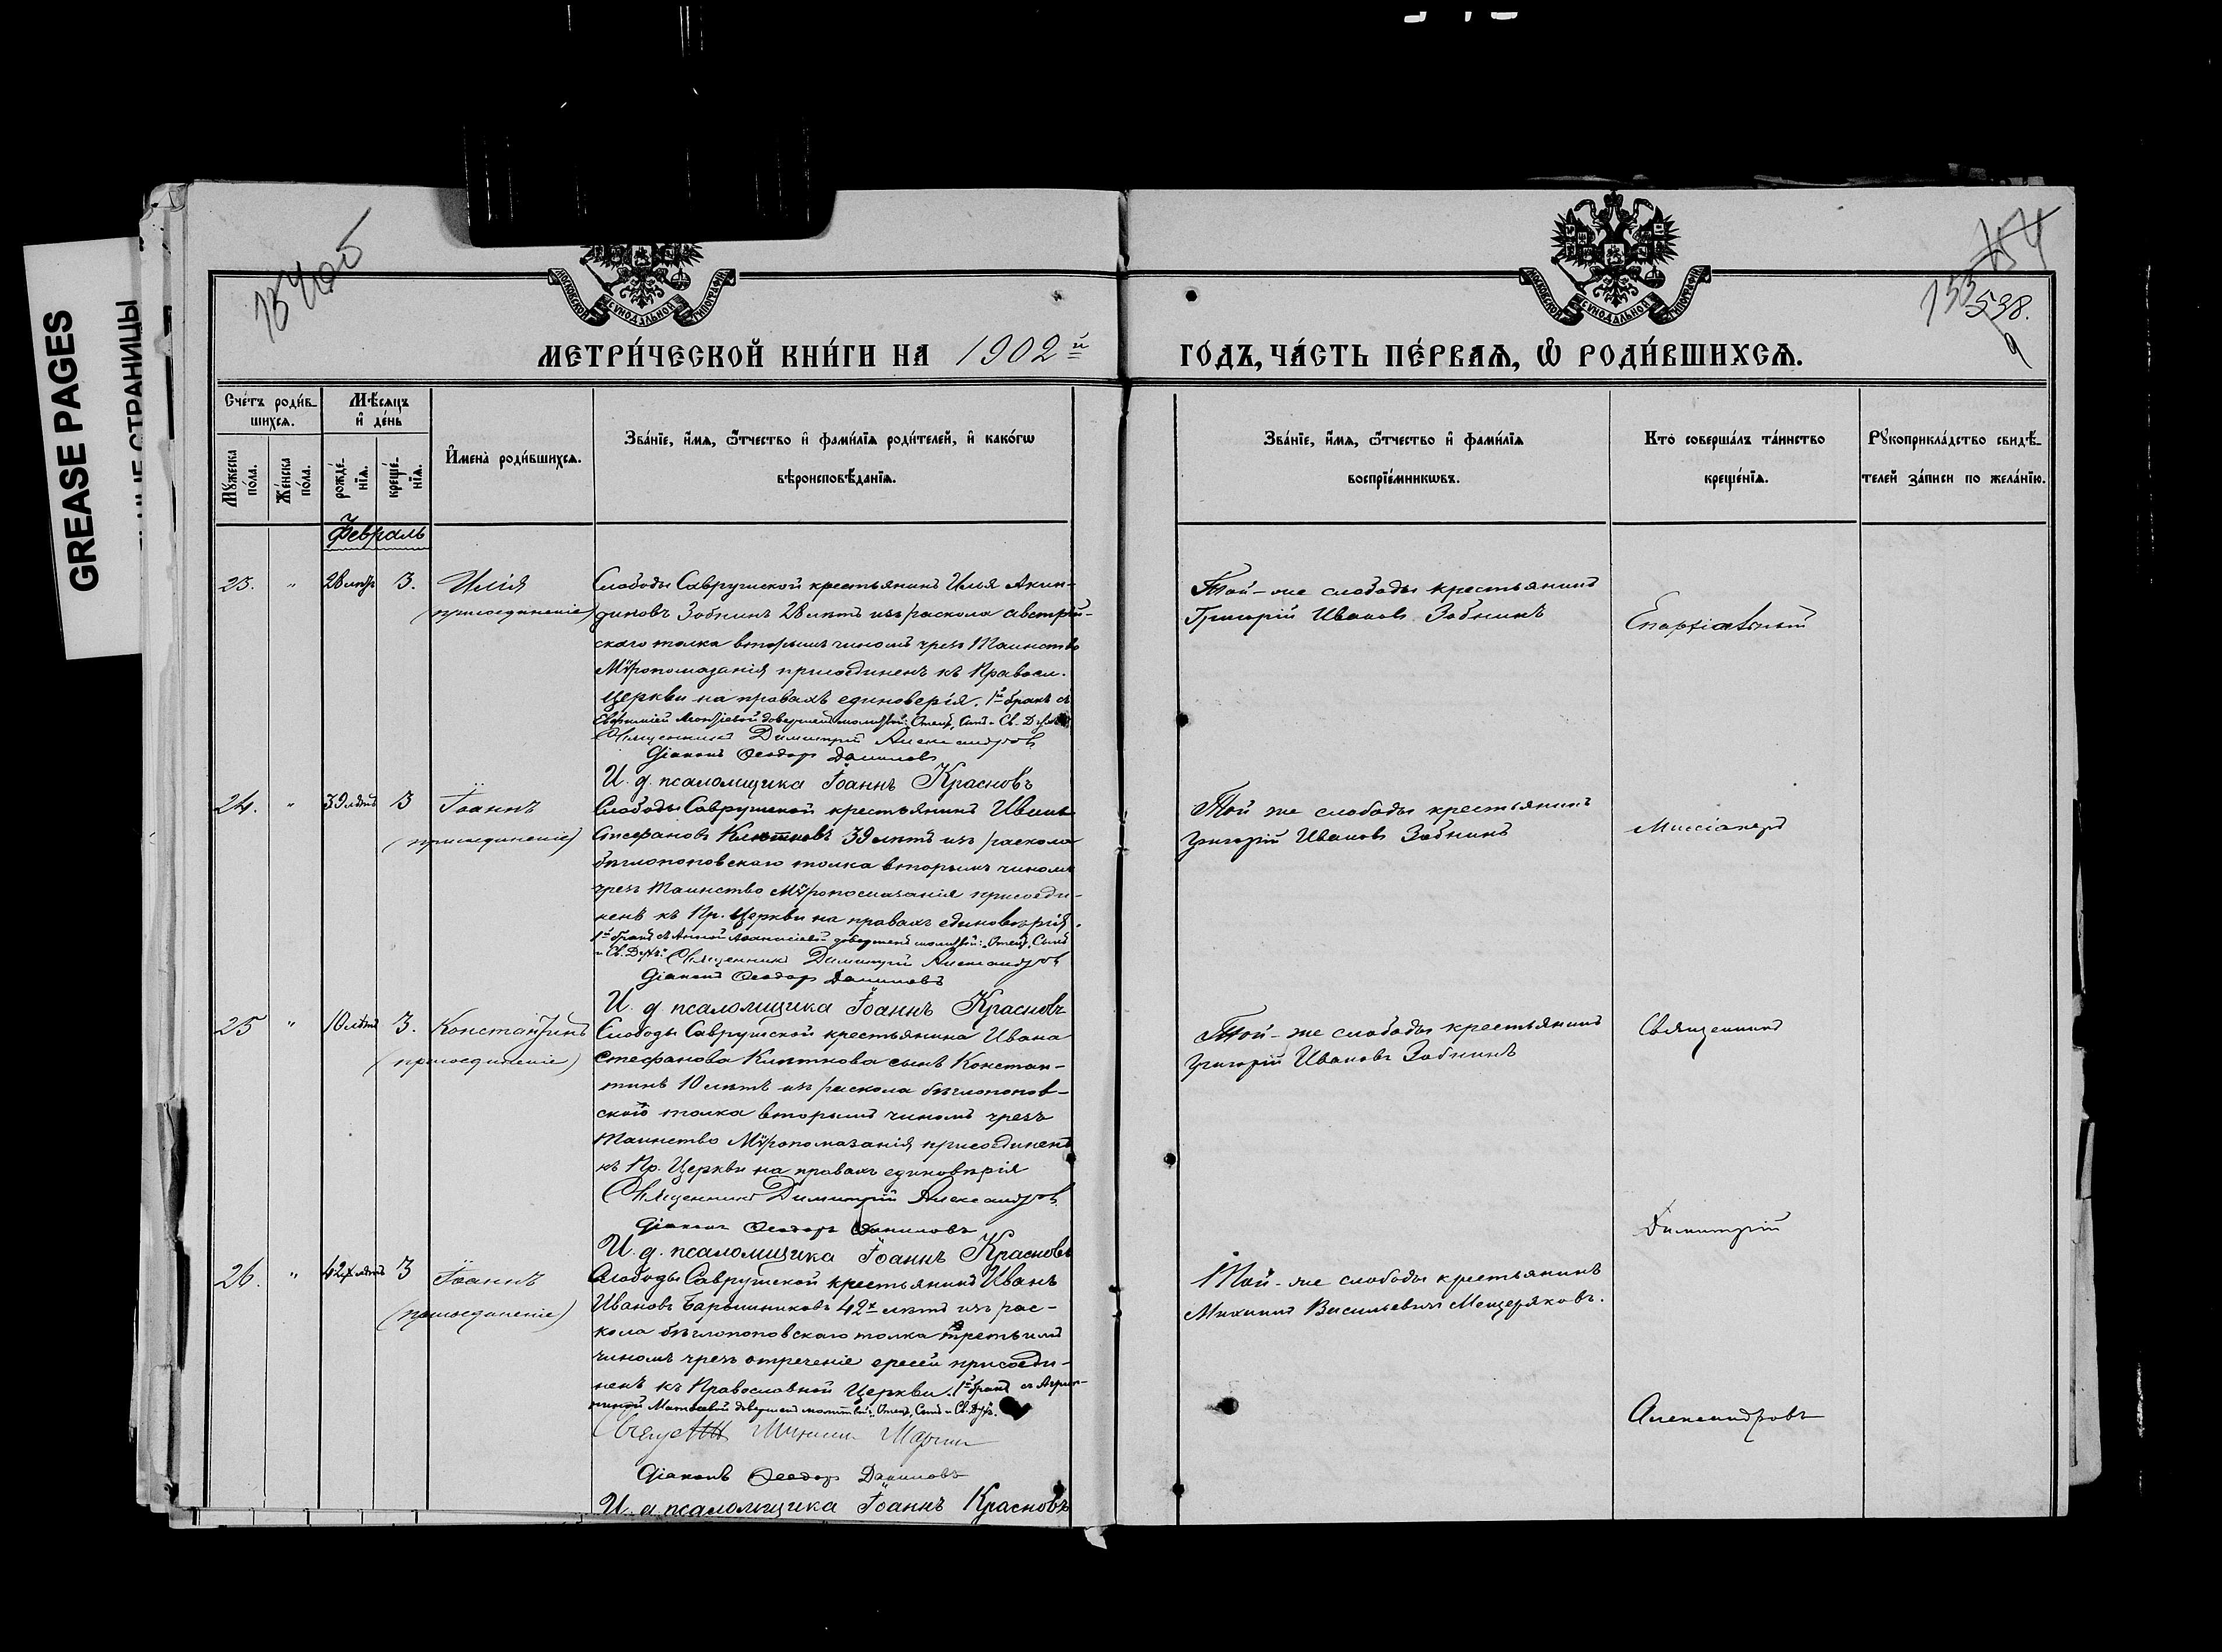 GREASE PAGES
СТРАНИЦЫ
538.
МОСКОВСКОЙ СУНОДАЛЬНОЙ ТИПОГРАФІИ
МОСКОВСКОЙ СУНОДАЛЬНОЙ ТИПОГРАФІИ
МЕТРИ́ЧЕСКОЙ КНИ́ГИ НА 1902й ГО́ДЪ, ЧА́СТЬ ПЕ́РВАѦ, Ѽ РОДИ́ВШИХСѦ.
Сче́тъ роди́в-
шихсѧ.
Мꙋ́жеска по́ла.
Же́нска по́ла.
Мѣ́сѧцъ
и҆ де́нь
рожде́-
нїѧ.
креще́-
нїѧ.
И҆мена̀ роди́вшихсѧ.
Зва́нїе, и҆́мѧ, ѻ҆́тчество и҆ фами́лїѧ роди́телей, и҆ како́гѡ
вѣроисповѣ́данїѧ.
Зва́нїе, и҆́мѧ, ѻ҆́тчество и҆ фами́лїѧ
воспрїе́мникѡвъ.
Кто̀ соверша́лъ та́инство
креще́нїѧ.
Рꙋкоприкла́дство свидѣ́-
телей за́писи по жела́нїю.
Февраль
23. " 28 лѣтъ 3. Илія
(присоединеніе)
Слободы Саврушской крестьянинъ Илья Акин-
диновъ Зобнинъ 28 лѣтъ изъ раскола австрій-
скаго толка вторымъ чиномъ чрезъ Таинство
Мѵропомазанія присоединенъ къ Правосл.
Церкви на правахъ единоверія. 1й бракъ съ
Евфиміей Леонтіевой довершенъ молитвой: Отецъ, Сынъ и Св. Духъ
Священникъ Димитрій Александровъ
Діаконъ Ѳеодоръ Даниловъ
И. д. псаломщика Іоаннъ Красновъ
Той-же слободы крестьянинъ
Григорій Ивановъ Зобнинъ
Епархіальный
24. " 39 лѣтъ 3 Іоаннъ
(присоединеніе)
Слободы Саврушской крестьянинъ Иванъ
Стефановъ 39 лѣтъ изъ раскола
бѣглопоповскаго толка вторымъ чиномъ
чрезъ Таинство Мѵропомазанія присоеди-
ненъ къ Пр. Церкви на правахъ единовѣрія.
1й бракъ съ Анной довершенъ молитвой: Отецъ, Сынъ
и Св. Духъ. Священникъ Димитрій Александровъ
Діаконъ Ѳеодоръ Даниловъ
И. д. псаломщика Іоаннъ Красновъ
Той же слободы крестьянинъ
Григорій Ивановъ Зобнинъ
Миссіонеръ
25 " 10 лѣтъ 3. Константинъ
(присоединеніе)
Слободы Саврушской крестьянина Ивана
Стефанова сынъ Констан-
тинъ 10 лѣтъ изъ раскола бѣглопопов-
скаго толка вторымъ чиномъ чрезъ
Таинство Мѵропомазанія присоединенъ
къ Пр. Церкви на правахъ единовѣрія
Священникъ Димитрій Александровъ
Діаконъ Ѳеодоръ Даниловъ
И. д. псаломщика Іоаннъ Красновъ
Той-же слободы крестьянинъ
Григорій Ивановъ Зобнинъ
Священникъ
Димитрій
26. " 42хъ лѣтъ 3 Іоаннъ
(присоединеніе)
Слободы Саврушской крестьянинъ Иванъ
Ивановъ 42х лѣтъ изъ рас-
кола бѣглопоповскаго толка третьимъ
чиномъ чрезъ отреченіе ересей присоеди-
ненъ къ Православной Церкви. 1й бракъ съ
довершенъ молитвой: Отецъ, Сынъ и Св. Духъ.
Діаконъ Ѳеодоръ Даниловъ
И. д. псаломщика Іоаннъ Красновъ
Той-же слободы крестьянинъ
Михаилъ Васильевичъ Мещеряковъ.
Александровъ